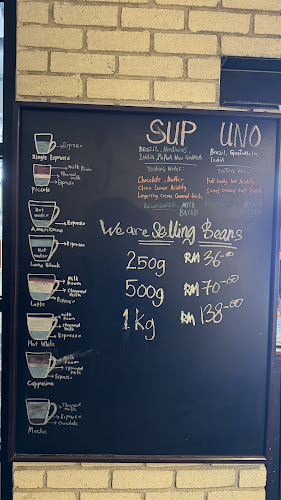 SUP UNO
Brazil, Honduras,
India, Papua New Guinea
Brazil, Guatemala,
India
Tasting Notes:
Chocolate, Butter
Clean Lower Acidity
Lingering Creme Caramel
Full body low Acidity
Recommended: MILK
BASED
We are Selling Beans
250g RM 36.00
500g RM 70.00
1kg RM 138.00
Espresso
Single Espresso
milk foam
steamed milk
Espresso
Piccolo
Hot water
Espresso
Americano
Espresso
Hot water
Long Black
milk foam
steamed milk
Espresso
Latte
milk foam
steamed milk
Espresso
Flat White
milk foam
steamed milk
Espresso
Cappucino
steamed milk
Espresso
Chocolate
Mocha